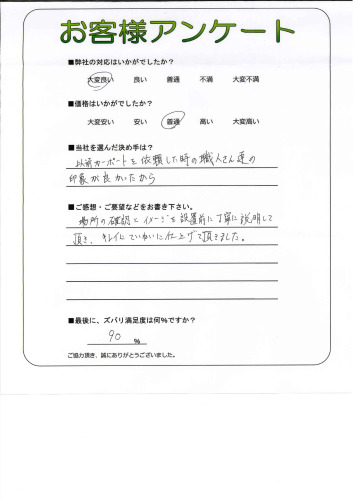 お客様アンケート
■弊社の対応はいかがでしたか?
大変良い 良い 普通 不満 大変不満
■価格はいかがでしたか?
大変安い 安い 普通 高い 大変高い
■当社を選んだ決め手は?
以前カーポートを依頼した時の職人さん達の
印象が良かったから
■ご感想・ご要望などをお書き下さい。
場所の確認とイメージを設置前に丁寧に説明して
頂き、キレイにていねいに仕上げて頂きました。
■最後に、ズバリ満足度は何%ですか?
90 %
ご協力頂き、誠にありがとうございました。